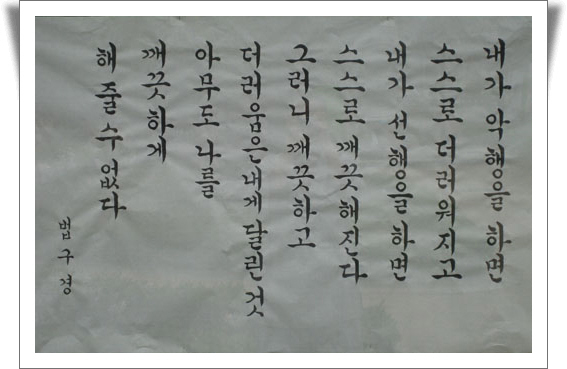 내가 악행을 하면
스스로 더러워지고
내가 선행을 하면
스스로 깨끗해진다
그러니 깨끗하고
더러움은 내게 달린 것
아무도 나를
깨끗하게
해 줄 수 없다
법구경